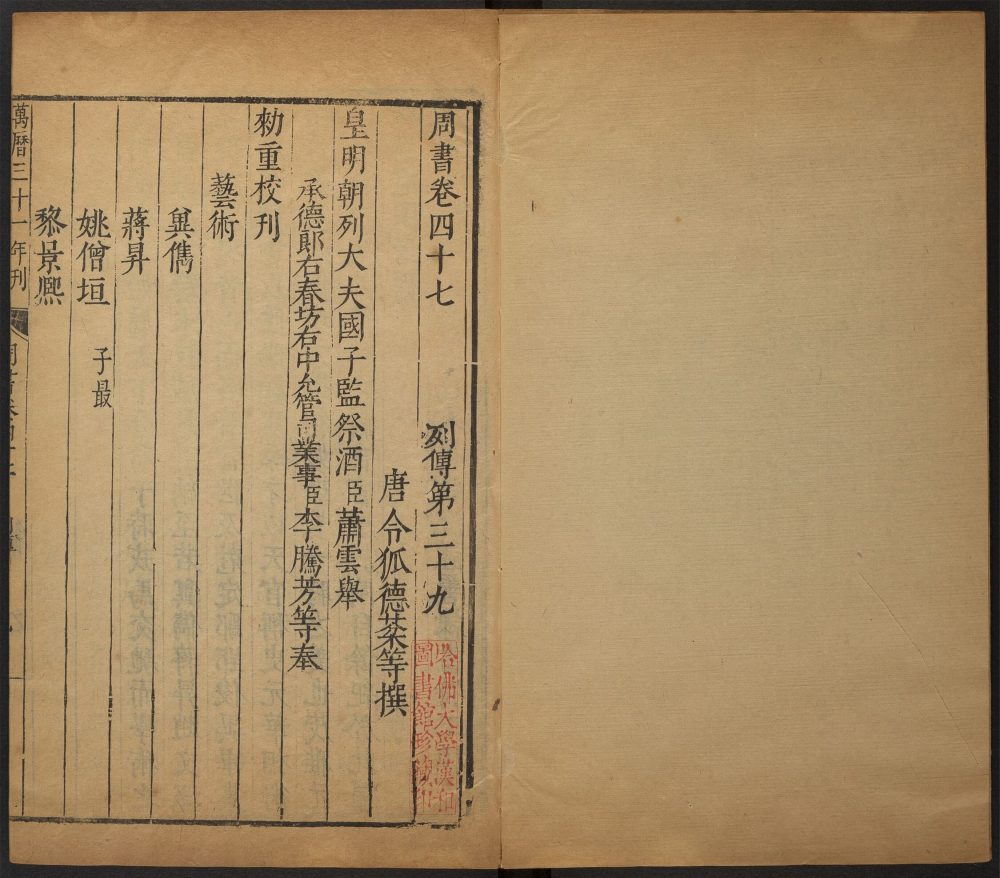 周書卷四十七 列傳第三十九
唐令狐德棻等撰
皇明朝列大夫國子監祭酒臣蕭雲舉
承德郎右春坊右中允管司業事臣李騰芳等奉
勑重校刊
藝術
兾儁
蔣昇
姚僧垣 子最
黎景熈
萬曆三十一年刊
哈佛大學漢和
圖書館珍藏印